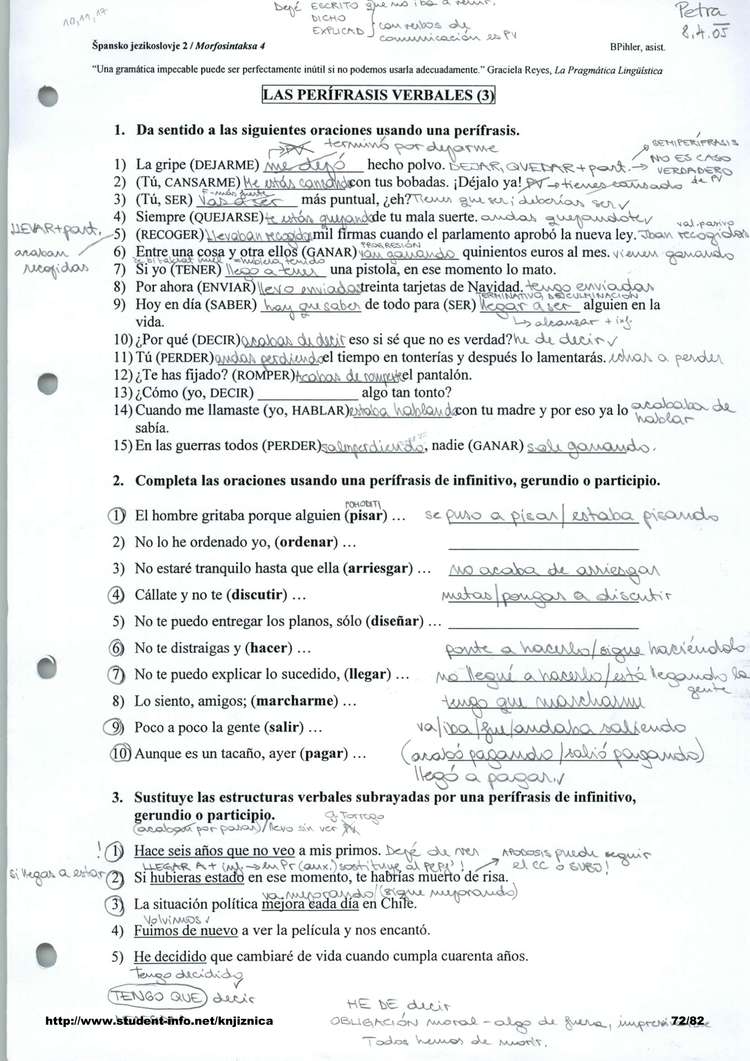 10, 11, 17
Dejé ESCRITO que no iba a venir.
DICHO
EXPLICAD
con verbos de
comunicación es PV
Petra
8.4.05
Špansko jezikoslovje 2 / Morfosintaksa 4
BPihler, asist.
"Una gramática impecable puede ser perfectamente inútil si no podemos usarla adecuadamente." Graciela Reyes, La Pragmática Lingüística
LAS PERÍFRASIS VERBALES (3)
1. Da sentido a las siguientes oraciones usando una perífrasis.
PV terminó por dejarme
SEMIPERÍFRASIS
1) La gripe (DEJARME) me dejó hecho polvo. DEJAR, QUEDAR + part. → NO ES CASO VERDADERO de PV
2) (Tú, CANSARME) Me estás cansando con tus bobadas. ¡Déjalo ya! PV → tienes cansado
F - más fuerte
3) (Tú, SER) Vas a ser más puntual, ¿eh? Tienes que ser; deberías ser √
4) Siempre (QUEJARSE) te estás quejando de tu mala suerte. andas quejandote √
LLEVAR + part.
acaban
recogidas
val. pasivo
5) (RECOGER) Llevaban recogidas mil firmas cuando el parlamento aprobó la nueva ley. Iban recogidas
PROGRESIÓN
6) Entre una cosa y otra ellos (GANAR) van ganando quinientos euros al mes. vienen ganando
si hubiera tenido
7) Si yo (TENER) llego a tener una pistola, en ese momento lo mato.
8) Por ahora (ENVIAR) llevo enviadas treinta tarjetas de Navidad. tengo enviadas
TERMINATIVO, DE CULMINACIÓN
9) Hoy en día (SABER) hay que saber de todo para (SER) llegar a ser alguien en la
vida.
↳ alcanzar + inf.
10) ¿Por qué (DECIR) acabas de decir eso si sé que no es verdad? he de decir √
11) Tú (PERDER) andas perdiendo el tiempo en tonterías y después lo lamentarás. echas a perder
12) ¿Te has fijado? (ROMPER) Acabas de romperte el pantalón.
13) ¿Cómo (yo, DECIR) ____________ algo tan tonto?
14) Cuando me llamaste (yo, HABLAR) estaba hablando con tu madre y por eso ya lo acababa de hablar
sabía.
15) En las guerras todos (PERDER) salen perdiendo, nadie (GANAR) sale ganando.
2. Completa las oraciones usando una perífrasis de infinitivo, gerundio o participio.
POHODITI
1) El hombre gritaba porque alguien (pisar) … se puso a pisar / estaba pisando
2) No lo he ordenado yo, (ordenar) …
3) No estaré tranquilo hasta que ella (arriesgar) … no acaba de arriesgar
4) Cállate y no te (discutir) … metas / pongas a discutir
5) No te puedo entregar los planos, sólo (diseñar) …
6) No te distraigas y (hacer) … ponte a hacerlo / sigue haciéndolo
7) No te puedo explicar lo sucedido, (llegar) … no llegué a hacerlo / está llegando la gente
8) Lo siento, amigos; (marcharme) … tengo que marcharme
9) Poco a poco la gente (salir) … va / iba / fue / andaba saliendo
10) Aunque es un tacaño, ayer (pagar) … (acabó pagando / salió pagando)
llegó a pagar. √
3. Sustituye las estructuras verbales subrayadas por una perífrasis de infinitivo,
gerundio o participio.
G. Torrego
(acaban por pasar) / llevo sin ver PV
! 1) Hace seis años que no veo a mis primos. Dejé de ver
APODOSIS puede seguir
el CC o SUBJ!
LLEGAR A + inf. → en Pr (aux.) sostituye al PCPl!
si llegas a estar
2) Si hubieras estado en ese momento, te habrías muerto de risa.
va mejorando / (sigue mejorando)
3) La situación política mejora cada día en Chile.
Volvimos √
4) Fuimos de nuevo a ver la película y nos encantó.
5) He decidido que cambiaré de vida cuando cumpla cuarenta años.
Tengo decidido
TENGO QUE decir
HE DE decir
http://www.student-info.net/knjiznica
OBLIGACIÓN moral – algo de fuera,
72/82
Todos hemos de morir.